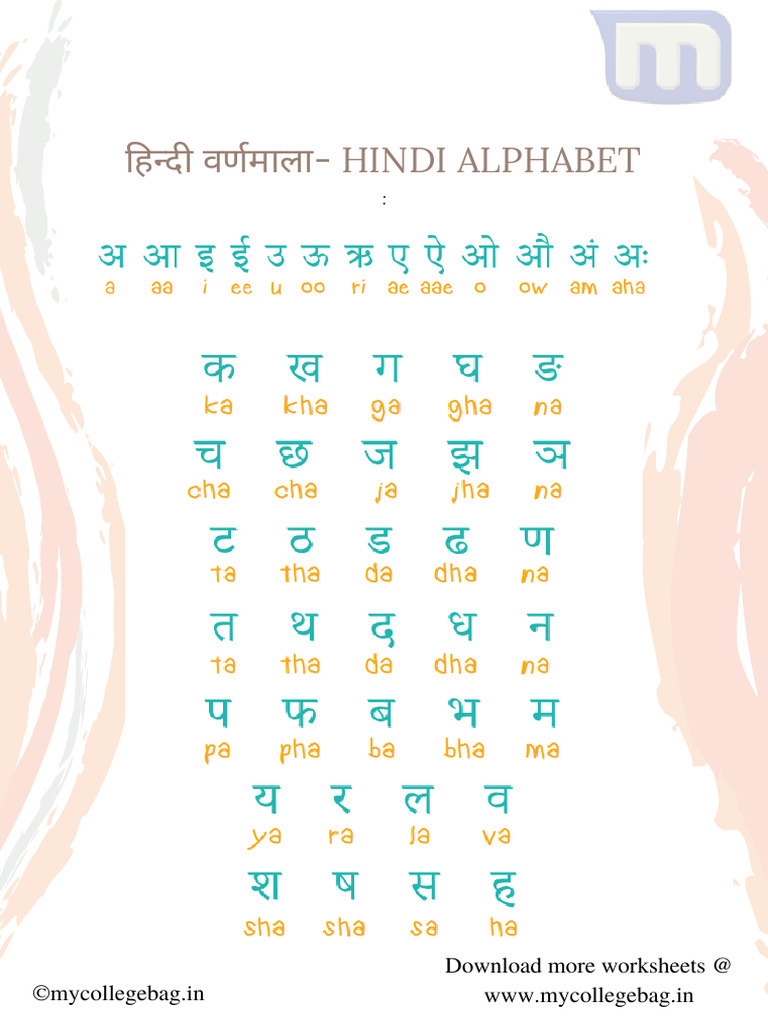 m
हिन्दी वर्णमाला- HINDI ALPHABET
:
अ आ इ ई उ ऊ ऋ ए ऐ ओ औ अं अः
a aa i ee u oo ri ae aae o ow am aha
क ख ग घ ङ
ka kha ga gha na
च छ ज झ ञ
cha cha ja jha na
ट ठ ड ढ ण
ta tha da dha na
त थ द ध न
ta tha da dha na
प फ ब भ म
pa pha ba bha ma
य र ल व
ya ra la va
श ष स ह
sha sha sa ha
Download more worksheets @
©mycollegebag.in www.mycollegebag.in